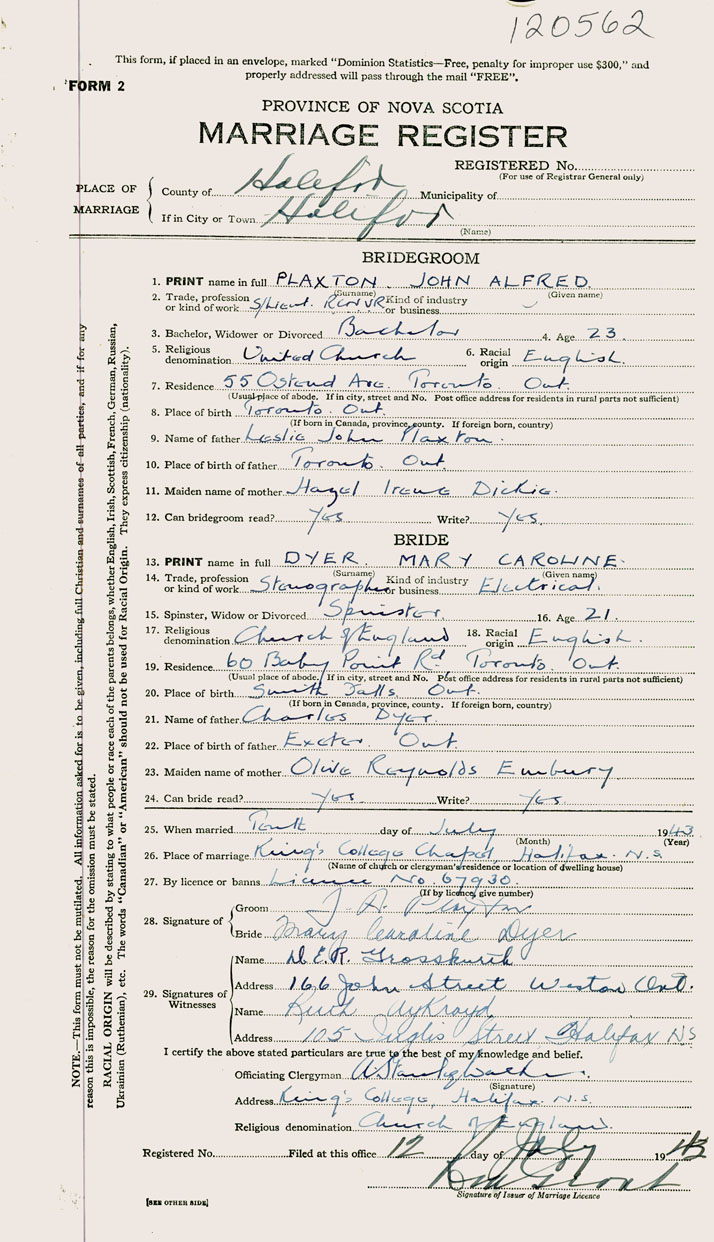 120562
This form, if placed in an envelope, marked "Dominion Statistics—Free, penalty for improper use $300," and
properly addressed will pass through the mail "FREE".
FORM 2
PROVINCE OF NOVA SCOTIA
MARRIAGE REGISTER
REGISTERED No.
(For use of Registrar General only)
PLACE OF MARRIAGE
County of Halifax Municipality of
If in City or Town Halifax
(Name)
BRIDEGROOM
1. PRINT name in full PLAXTON JOHN ALFRED
(Surname) (Given name)
2. Trade, profession or kind of work S/Lieut. RCNVR Kind of industry or business
3. Bachelor, Widower or Divorced Bachelor 4. Age 23
5. Religious denomination United Church 6. Racial origin English.
7. Residence 55 Ostend Ave. Toronto. Ont.
(Usual place of abode. If in city, street and No. Post office address for residents in rural parts not sufficient)
8. Place of birth Toronto. Ont.
(If born in Canada, province, county. If foreign born, country)
9. Name of father Leslie John Plaxton.
10. Place of birth of father Toronto. Ont.
11. Maiden name of mother Hazel Irene Dickie.
12. Can bridegroom read? Yes Write? Yes
BRIDE
13. PRINT name in full DYER. MARY CAROLINE.
(Surname) (Given name)
14. Trade, profession or kind of work Stenographer Kind of industry or business Electrical.
15. Spinster, Widow or Divorced Spinster 16. Age 21.
17. Religious denomination Church of England 18. Racial origin English.
19. Residence 60 Baby Point Rd, Toronto. Ont.
(Usual place of abode. If in city, street and No. Post office address for residents in rural parts not sufficient)
20. Place of birth Smith Falls Ont.
(If born in Canada, province, county. If foreign born, country)
21. Name of father Charles Dyer.
22. Place of birth of father Exeter. Ont.
23. Maiden name of mother Olive Reynolds Embury
24. Can bride read? Yes. Write? Yes.
25. When married Tenth day of July 1943
(Month) (Year)
26. Place of marriage King's College Chapel Halifax. N.S.
(Name of church or clergyman's residence or location of dwelling house)
27. By licence or banns Licence No. 67930
(If by licence, give number)
28. Signature of
Groom J. A. Plaxton
Bride Mary Caroline Dyer
29. Signatures of Witnesses
Name D.E.R. Grosskurth
Address 166 John Street Weston Ont.
Name Ruth Aykroyd
Address 105 Inglis Street Halifax NS
I certify the above stated particulars are true to the best of my knowledge and belief.
Officiating Clergyman A. Stanley Walker
(Signature)
Address King's College, Halifax N.S.
Religious denomination Church of England
Registered No. Filed at this office 12 day of July 1943
Signature of Issuer of Marriage Licence
[SEE OTHER SIDE]
NOTE.—This form must not be mutilated. All information asked for is to be given, including full Christian and surnames of all parties, and if for any
reason this is impossible, the reason for the omission must be stated.
RACIAL ORIGIN will be described by stating to what people or race each of the parents belongs, whether English, Irish, Scottish, French, German, Russian,
Ukrainian (Ruthenian), etc. The words "Canadian" or "American" should not be used for Racial Origin. They express citizenship (nationality).